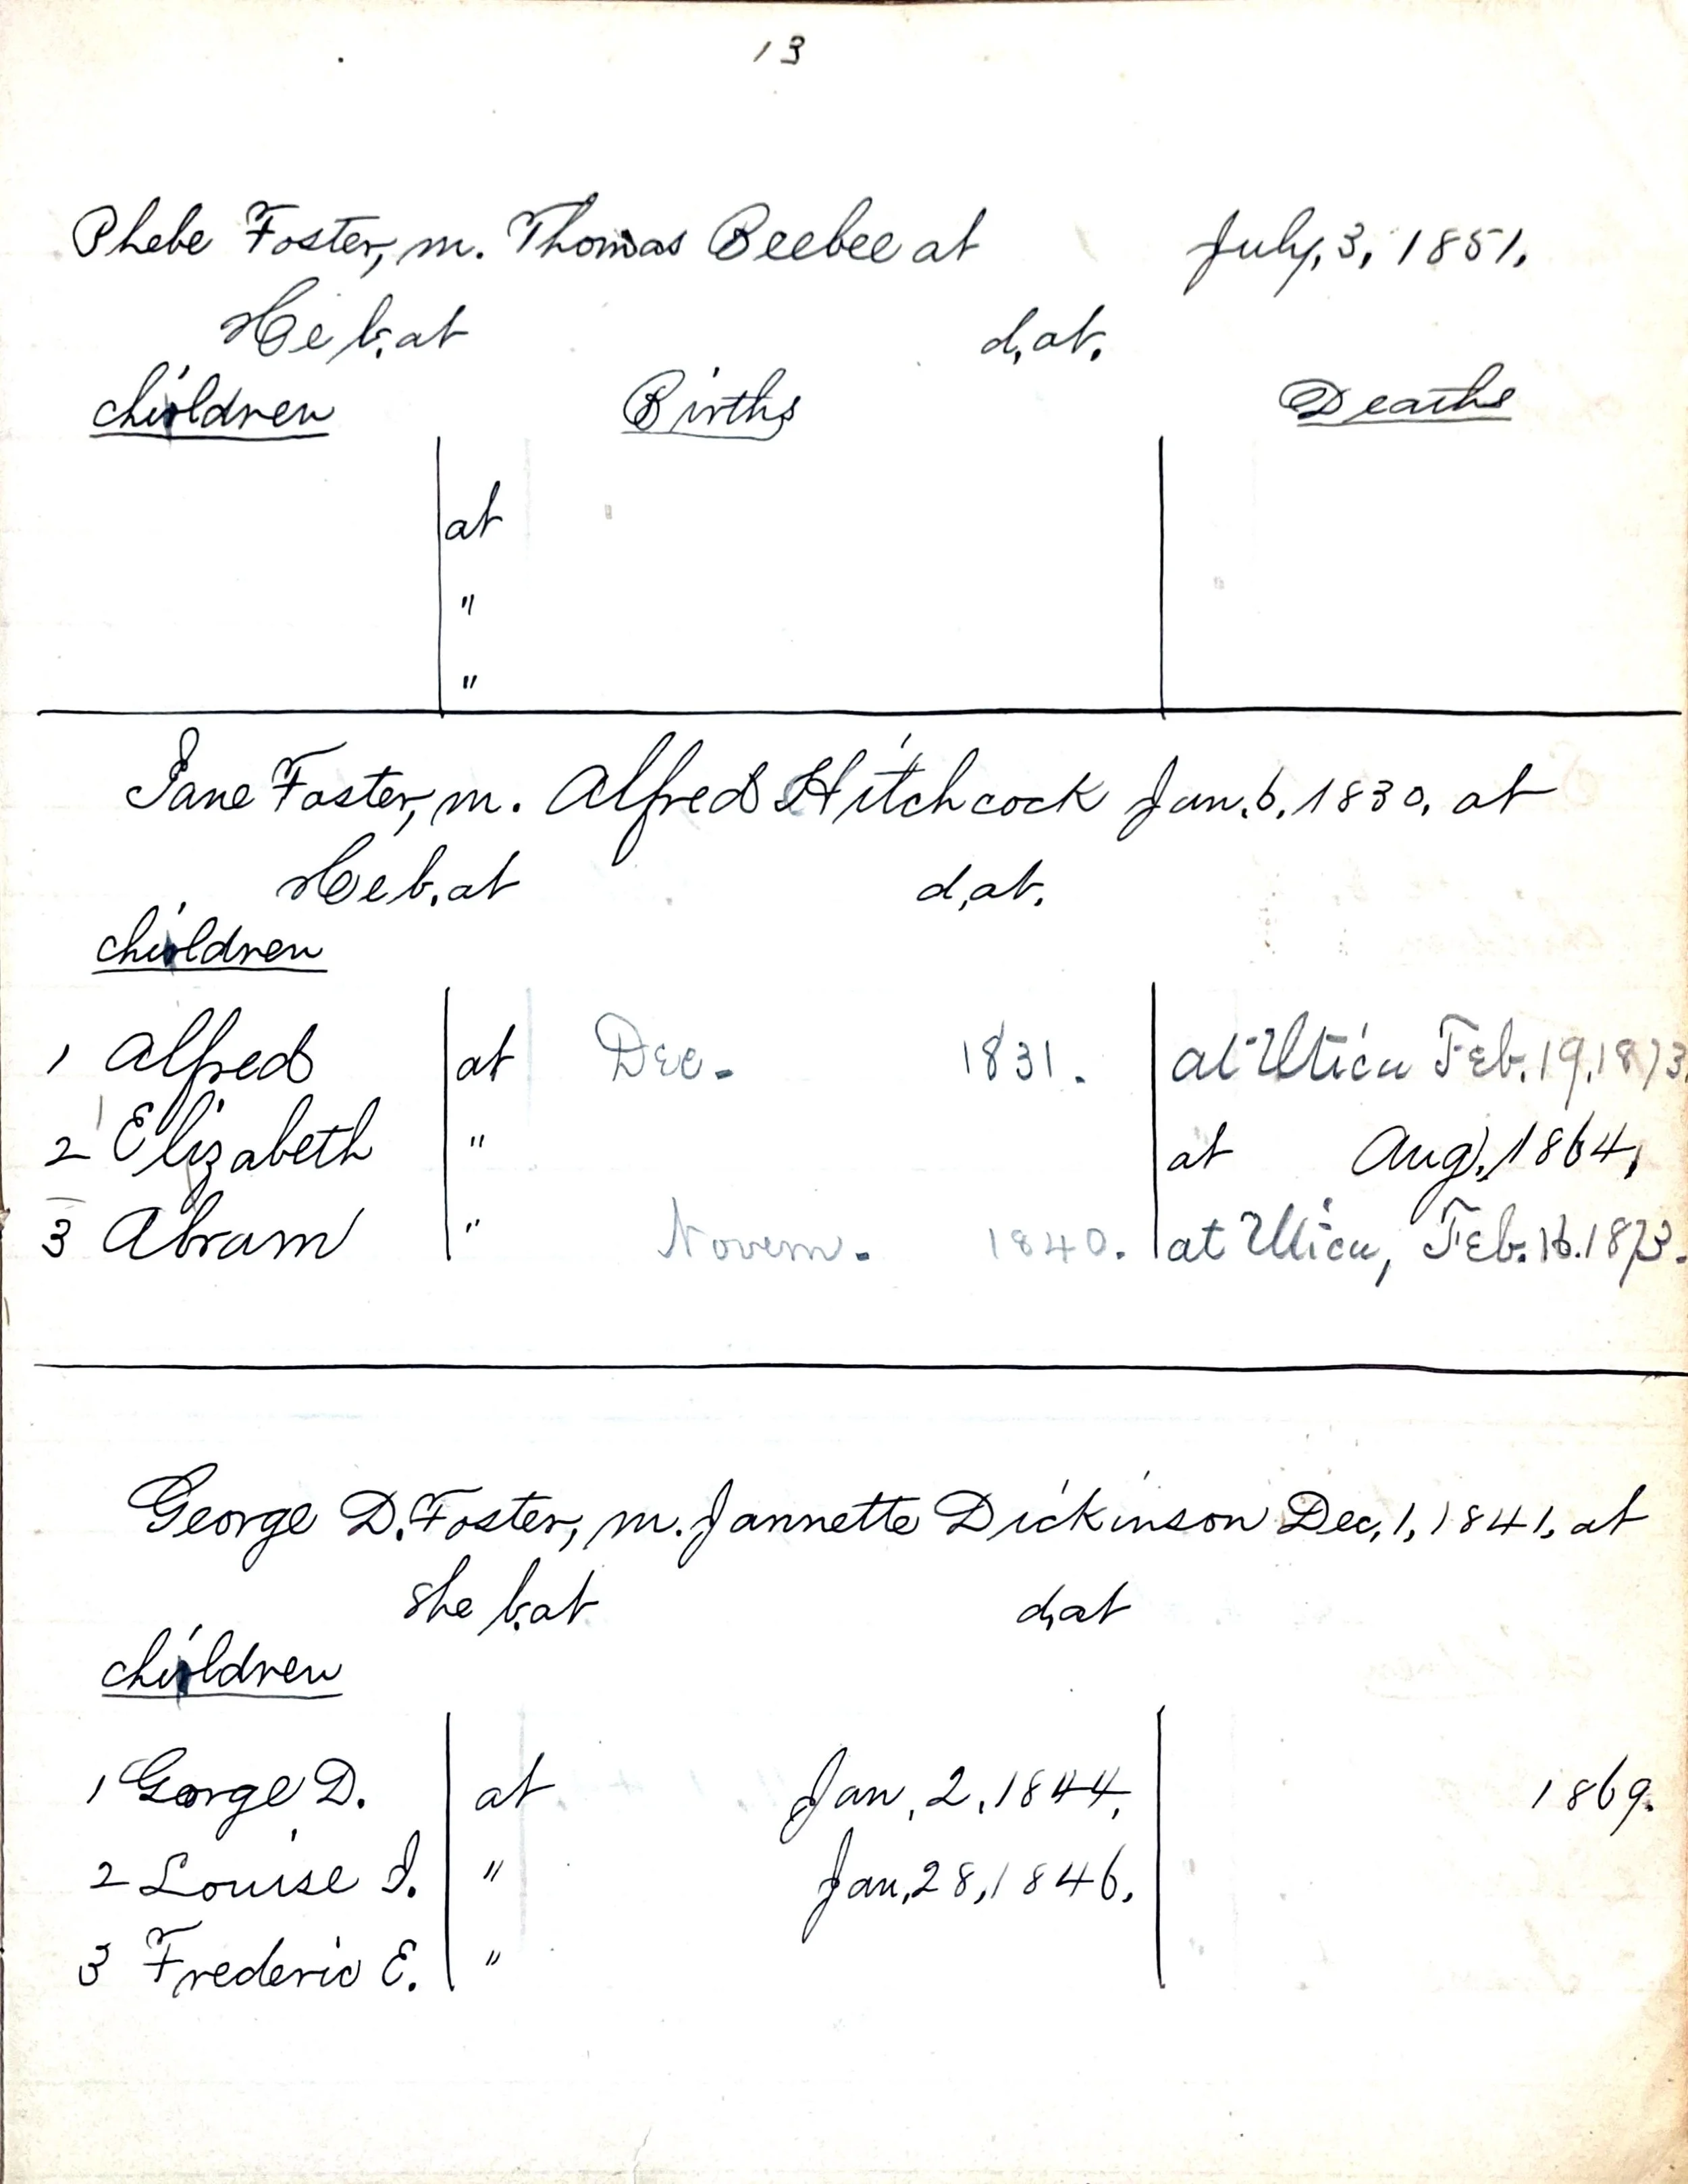 13
Phebe Foster, m. Thomas Beebee at July, 3, 1851.
He b. at d, at.
children Births Deaths
at
"
"
Jane Foster, m. Alfred Hitchcock Jan. 6, 1830, at
He b. at d, at.
children
1 Alfred at Dec. 1831. at Utica Feb. 19, 1873.
2 Elizabeth " at Aug, 1864,
3 Abram " Novem. 1840. at Utica, Feb. 16. 1873.
George D. Foster, m. Jannette Dickinson Dec, 1, 1841, at
she b. at d, at
children
1 George D. at Jan, 2, 1844, 1869.
2 Louise J. " Jan, 28, 1846,
3 Frederic E. "